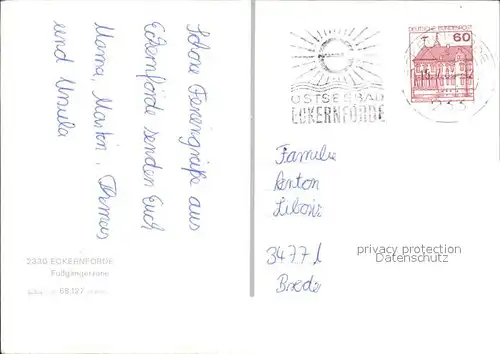 Schöne Feriengrüße aus
Eckernförde senden Euch
Mama, Martin, Thomas
und Ursula
2330 ECKERNFÖRDE
Fußgängerzone
68.127
OSTSEEBAD
ECKERNFÖRDE
DEUTSCHE BUNDESPOST
60
Familie
Anton
3477 1
privacy protection
Datenschutz